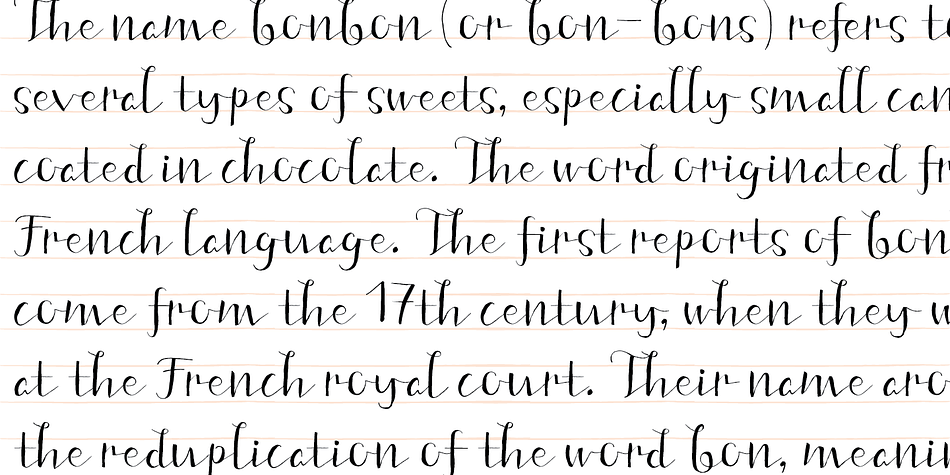 The name bonbon (or bon-bons) refers to
several types of sweets, especially small can
coated in chocolate. The word originated fr
French language. The first reports of bon
come from the 17th century, when they w
at the French royal court. Their name aro
the reduplication of the word bon, meani